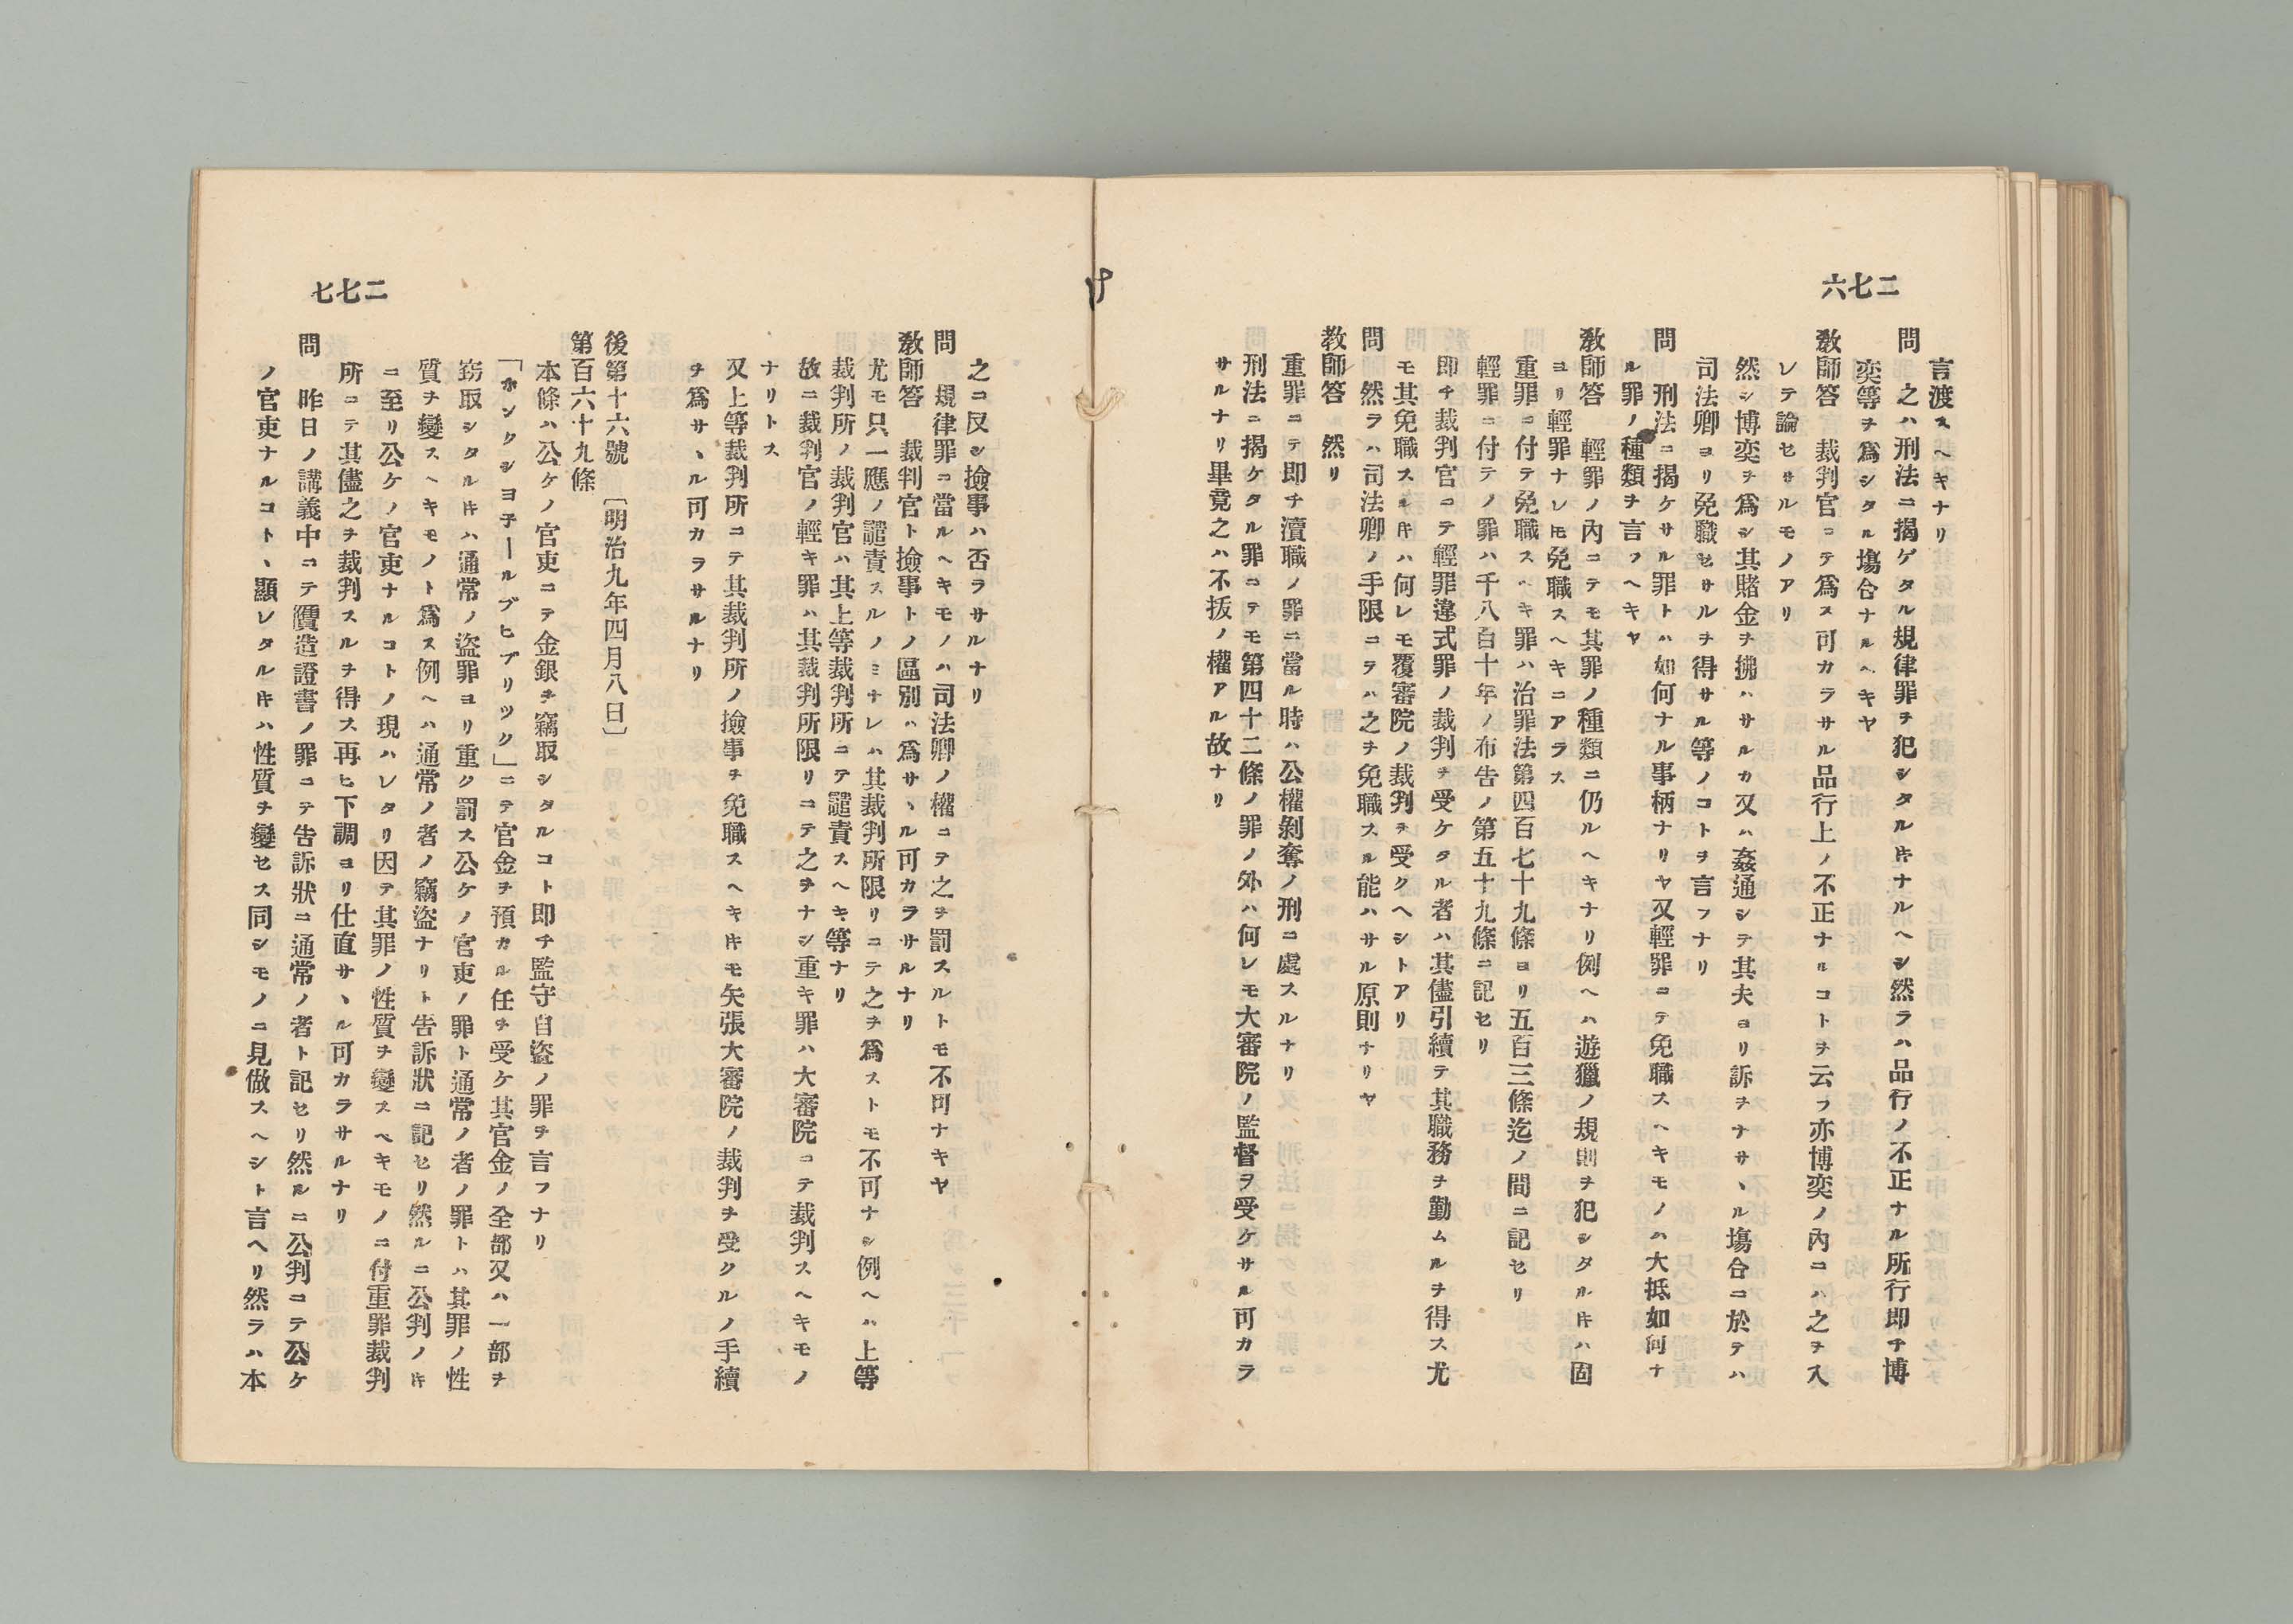 二七六
言渡スヘキナリ
問　之ハ刑法ニ揭ゲタル規律罪ヲ犯シタルキナルヘシ然ラハ品行ノ不正ナル所行即チ博
奕等ヲ爲シタル塲合ナルヘキヤ
敎師答　裁判官ニテ爲ス可カラサル品行上ノ不正ナルコトヲ云フ亦博奕ノ內ニハ之ヲ入
レテ論セサルモノアリ
然シ博奕ヲ爲シ其賭金ヲ拂ハサルカ又ハ姦通シテ其夫ヨリ訴ヲナサヽル塲合ニ於テハ
司法卿ヨリ免職セサルヲ得サル等ノコトヲ言フナリ
問　刑法ニ揭ケサル罪トハ如何ナル事柄ナリヤ又輕罪ニテ免職スヘキモノハ大抵如何ナ
ル罪ノ種類ヲ言フヘキヤ
敎師答　輕罪ノ內ニテモ其罪ノ種類ニ仍ルヘキナリ例ヘハ遊獵ノ規則ヲ犯シタルキハ固
ヨリ輕罪ナレモ免職スヘキニアラス
重罪ニ付テ免職スヘキ罪ハ治罪法第四百七十九條ヨリ五百三條迄ノ間ニ記セリ
輕罪ニ付テノ罪ハ千八百十年ノ布告ノ第五十九條ニ記セリ
即チ裁判官ニテ輕罪違式罪ノ裁判ヲ受ケタル者ハ其儘引續テ其職務ヲ勤ムルヲ得ス尤
モ其免職スルキハ何レモ覆審院ノ裁判ヲ受クヘシトアリ
問　然ラハ司法卿ノ手限ニテハ之ヲ免職スル能ハサル原則ナリヤ
敎師答　然リ
重罪ニテ即チ瀆職ノ罪ニ當ル時ハ公權剝奪ノ刑ニ處スルナリ
刑法ニ揭ケタル罪ニテモ第四十二條ノ罪ノ外ハ何レモ大審院ノ監督ヲ受ケサル可カラ
サルナリ畢竟之ハ不拔ノ權アル故ナリ
二七七
之ニ反シ撿事ハ否ラサルナリ
問　規律罪ニ當ルヘキモノハ司法卿ノ權ニテ之ヲ罰スルトモ不可ナキヤ
敎師答　裁判官ト撿事トノ區別ハ爲サヽル可カラサルナリ
尤モ只一應ノ譴責スルノミナレハ其裁判所限リニテ之ヲ爲ストモ不可ナシ例ヘハ上等
裁判所ノ裁判官ハ其上等裁判所ニテ譴責スヘキ等ナリ
故ニ裁判官ノ輕キ罪ハ其裁判所限リニテ之ヲナシ重キ罪ハ大審院ニテ裁判スヘキモノ
ナリトス
又上等裁判所ニテ其裁判所ノ撿事ヲ免職スヘキキモ矢張大審院ノ裁判ヲ受クルノ手續
ヲ爲サヽル可カラサルナリ
後第十六號　〔明治九年四月八日〕
第百六十九條
本條ハ公ケノ官吏ニテ金銀ヲ竊取シタルコト即チ監守自盜ノ罪ヲ言フナリ
「ホンクシヨ子ールブヒブリツク」ニテ官金ヲ預カル任ヲ受ケ其官金ノ全部又ハ一部ヲ
竊取シタルキハ通常ノ盜罪ヨリ重ク罰ス公ケノ官吏ノ罪ト通常ノ者ノ罪トハ其罪ノ性
質ヲ變スヘキモノト爲ス例ヘハ通常ノ者ノ竊盜ナリト告訴狀ニ記セリ然ルニ公判ノキ
ニ至リ公ケノ官吏ナルコトノ現ハレタリ因テ其罪ノ性質ヲ變スヘキモノニ付重罪裁判
所ニテ其儘之ヲ裁判スルヲ得ス再ヒ下調ヨリ仕直サヽル可カラサルナリ
問　昨日ノ講義中ニテ贋造證書ノ罪ニテ告訴狀ニ通常ノ者ト記セリ然ルニ公判ニテ公ケ
ノ官吏ナルコトヽ顯レタルキハ性質ヲ變セス同シモノニ見做スヘシト言ヘリ然ラハ本